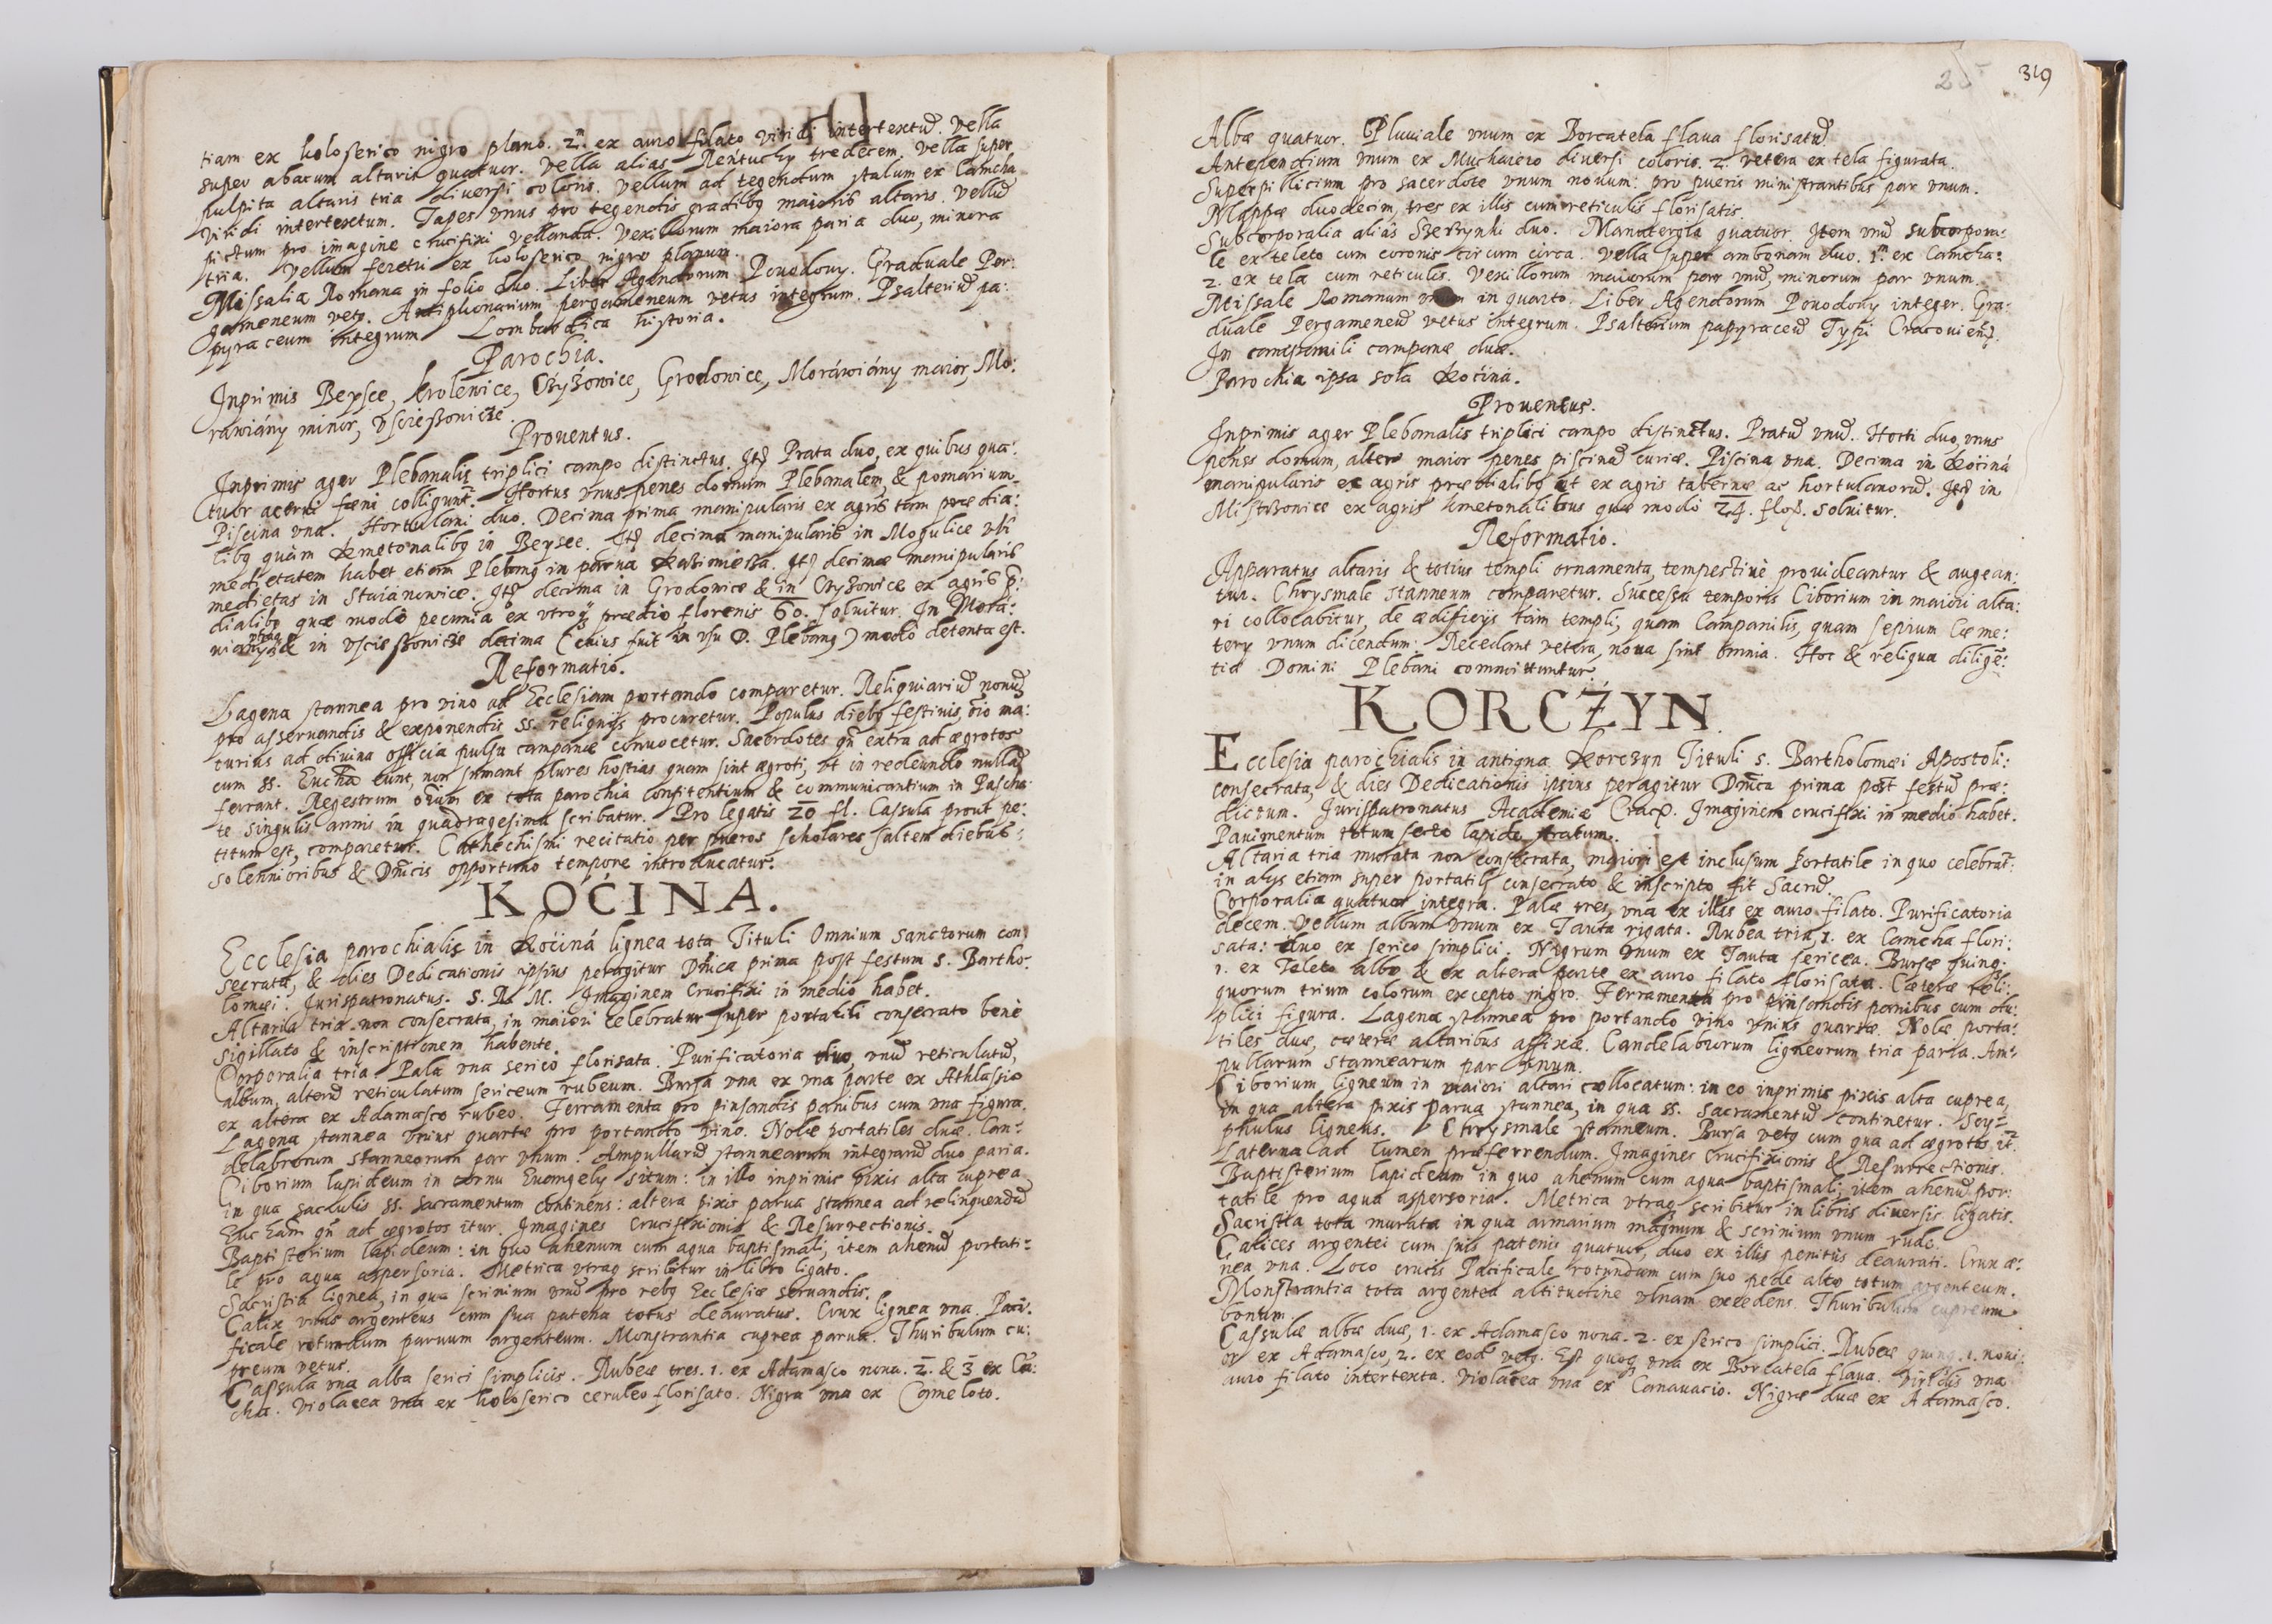 tiam ex holoserico nigro plano. 2.ᵐ ex auro filato viridi intertextũ. Vella
super abacum altaris quatuor. Vella alias Rentuchy tredecem. Vella super
pulpita altaris tria diuersi coloris. Vellum ad tegendum stalum ex Camcha
viridi intertextum. Tapes vnus pro tegendis gradibꝫ maioris altaris. Vellũ
pictum pro imagine crucifixi vellanda. Vexillorum maiora paria duo, minora
tria. Vellum feretri ex holoserico nigro planum.
Missalia Romana in folio duo. Liber Agendorum Pouodouy. Graduale Per:
gameneum vetꝫ. Antiphonarium pergameneum vetus integrum. Psalteriũ pa:
pyraceum integrum Lombardica historia.
Parochia.
Inprimis Beysce, Krolewice, Czyżowice, Grodowice, Moráwiány maior, Mo:
rawiány minor, Vscießowicze.
Prouentus.
Inprimis ager Plebanalis triplici campo distinctus. Itꝫ Prata duo, ex quibus qua:
tuor acerui fæni colligunt̃. Hortus vnus penes domum Plebanalem, & pomarium.
Piscina vna. Hortulani duo. Decima prima manipularis ex agris tam prædia:
libꝫ quàm kmetonalibꝫ in Beysce. Itꝫ decima manipularis in Mogulice vbi
medietatem habet etiam Plebanꝫ in parua Kazimierza. Itꝫ decimæ manipularis
medietas in Stáiánowice. Itꝫ decima in Grodowice & in Czyżowice ex agris p:
dialibꝫ quæ modò pecunia ex vtroqꝫ prædio florenis 60. soluitur. In Mora:
wiany vtraqꝫ & in Vscießowicze decima (cuius fuit in vsu D. Plebanꝫ) modò detenta est.
Reformatio.
Lagena stannea pro vino ad Ecclesiam portando comparetur. Reliquiariũ nouũ
pro asseruandis & exponendis SS. reliquijs procuretur. Populus diebꝫ festiuis, oĩo ma:
turius ad diuina officia pulsu campanæ conuocetur. Sacerdotes qñ extra ad ægrotos
cum SS. Euchã eunt, non sumant plures hostias quam sint ægroti, vt in redeundo nullã
ferant. Regestrum oĩum ex tota parochia confitentium & communicantium in Pascha:
te singulis annis in quadragesima scribatur. Pro legatis 20 fl. Casula prout pe:
titum est, comparetur. Cathechismi recitatio per pueros scholares saltem diebus
solennioribus & Dñicis opportuno tempore introducatur.
KOCINA.
Ecclesia parochialis in Kociná lignea tota Tituli Omnium Sanctorum con:
secrata, & dies Dedicationis ipsius peragitur Dñica prima post festum S. Bartho:
lomæi. Jurispatronatus. S. R. M. Imaginem Crucifixi in medio habet.
Altaria tria non consecrata, in maiori celebratur super portatili consecrato benè
sigillato & inscriptionem habente.
Corporalia tria. Pala vna serico florisata. Purificatoria duo, vnũ reticulatũ,
album, alterũ reticulatum sericeum rubeum. Bursa vna ex vna parte ex Athlasio
ex altera ex Adamasco rubeo. Ferramenta pro pinsandis panibus cum vna figura.
Lagena stannea vnius quartæ pro portando vino. Nolæ portatiles duæ. Can:
delabrorum stanneorum par vnum. Ampullarũ stannearum integrarũ duo paria.
Ciborium lapideum in cornu Euangely situm: in illo inprimis pixis alta cuprea
in qua sacculis SS. Sacramentum continens: altera pixis parua stannea ad relinquendũ
Eucham̃ qñ ad ægrotos itur. Imagines Crucifixionis & Resurrectionis.
Baptisterium lapideum: in quo ahenum cum aqua baptismali, item ahenũ portati:
le pro aqua aspersoria. Metrica vtraqꝫ scribitur in libro ligato.
Sacristia lignea, in qua scrinium vnũ pro rebꝫ Ecclesiæ seruandis.
Calix vnus argenteus cum sua patena totus deauratus. Crux lignea vna. Paci:
ficale rotundum paruum argenteum. Monstrantia cuprea parua. Thuribulum cu:
preum vetus.
Casula vna alba serici simplicis. Rubeæ tres. 1. ex Adamasco noua. 2. & 3 ex Cã:
cha. Violacea vna ex holoserico ceruleo florisato. Nigra vna ex Cameloto.
319
Albæ quatuor. Pluuiale vnum ex Borcatela flaua florisatũ.
Antependium vnum ex Muchaiero diuersi coloris. 2. vetera ex tela figurata.
Superpillicium pro sacerdote vnum nouum: pro pueris ministrantibus par vnum.
Mappæ duodecim, tres ex illis cum reticulis florisatis.
Subcorporalia aliàs Szerzynki duo. Manutergia quatuor. Item vnũ subcorpora:
le ex teleto cum coronis circum circa. Vella super ambonam duo. 1.ᵐ ex Camcha:
2. ex tela cum reticulis. Vexillorum maiorum par vnũ, minorum par vnum.
Missale Romanum vnum in quarto. Liber Agendorum Pouodouy integer. Gra:
duale Pergameneũ vetus integrum. Psalterium papyraceũ Typi Cracouieñ.
In campanili campanæ duæ.
Parochia ipsa sola Kociná.
Prouentus.
Inprimis ager Plebanalis triplici campo distinctus. Pratũ vnũ. Horti duo, vnus
penes domum, alter maior penes piscinã curiæ. Piscina vna. Decima in Kociná
manipularis ex agris prædialibꝫ et ex agris tabernæ ac hortulanorũ. Itꝫ in
Mistrzowice ex agris kmetonalibus quæ modò 24. floꝫ. soluitur.
Reformatio.
Apparatus altaris & totius templi ornamenta, tempestiuè prouideantur & augean:
tur. Chrysmale stanneum comparetur. Successu temporis Ciborium in maiori alta:
ri collocabitur, de ædificijs tàm templi, quam Campanilis, quam sepium Cæme:
tery vnum dicendum: Recedant vetera, noua sint omnia. Hoc & reliqua diligẽ:
tiæ Domini Plebani committuntur.
KORCŻYN.
Ecclesia parochialis in antiqua Korczyn Tituli S. Bartholomæi Apostoli:
consecrata, & dies Dedicationis ipsius peragitur Dñica prima post festũ præ:
dictum. Jurispatronatus Academiæ Cracꝫ. Imaginem crucifixi in medio habet.
Pauimentum totum secto lapide stratum.
Altaria tria murata non consecrata, maiori est inclusum Portatile in quo celebrat̃:
in alys etiam super portatili consecrato & inscripto fit Sacrũ.
Corporalia quatuor integra. Palæ tres, vna ex illis ex auro filato. Purificatoria
decem. Vellum album vnum ex Tauta rigata. Rubea tria, 1. ex Camcha flori:
sata: duo ex serico simplici. Nigrum vnum ex Tauta sericea. Bursæ quinqꝫ
1. ex Teleto albo & ex altera parte ex auro filato florisata. Cæteræ reli:
quorum trium colorum excepto nigro. Ferramenta pro pinsandis panibus cum du:
plici figura. Lagena stannea pro portando vino vnius quartæ. Nolæ porta:
tiles duæ, cæteræ altaribus affixæ. Candelabrorum ligneorum tria paria. Am:
pullarum stannearum par vnum.
Ciborium ligneum in maiori altari collocatum: in eo inprimis pixis alta cuprea,
in qua altera pixis parua stannea, in qua SS. Sacramentũ continetur. Scy:
phulus ligneus. Chrysmale stanneum. Bursa vetꝫ cum qua ad ægrotos it̃.
Laterna ad lumen præferrendum. Imagines Crucifixionis & Resurrectionis.
Baptisterium lapideum in quo ahenum cum aqua baptismali; item ahenũ por:
tatile pro aqua aspersoria. Metrica vtraqꝫ scribitur in libris diuersis ligatis.
Sacristia tota murata in qua armarium magnum & scrinium vnum rude.
Calices argentei cum suis patenis quatuor, duo ex illis penitùs deaurati. Crux æ:
nea vna. Loco crucis Pacificale rotundum cum suo pede alto totum argenteum.
Monstrantia tota argentea altitudine vlnam excedens. Thuribulum cupreum
bonum.
Casulæ albæ duæ, 1. ex Adamasco noua. 2. ex serico simplici. Rubeæ quinqꝫ. 1. noui:
or ex Adamasco, 2. ex eodẽ vetꝫ. Est quoqꝫ vna ex Borcatela flaua. Viridis vna
auro filato intertexta. Violacea vna ex Canauacio. Nigræ duæ ex Adamasco.